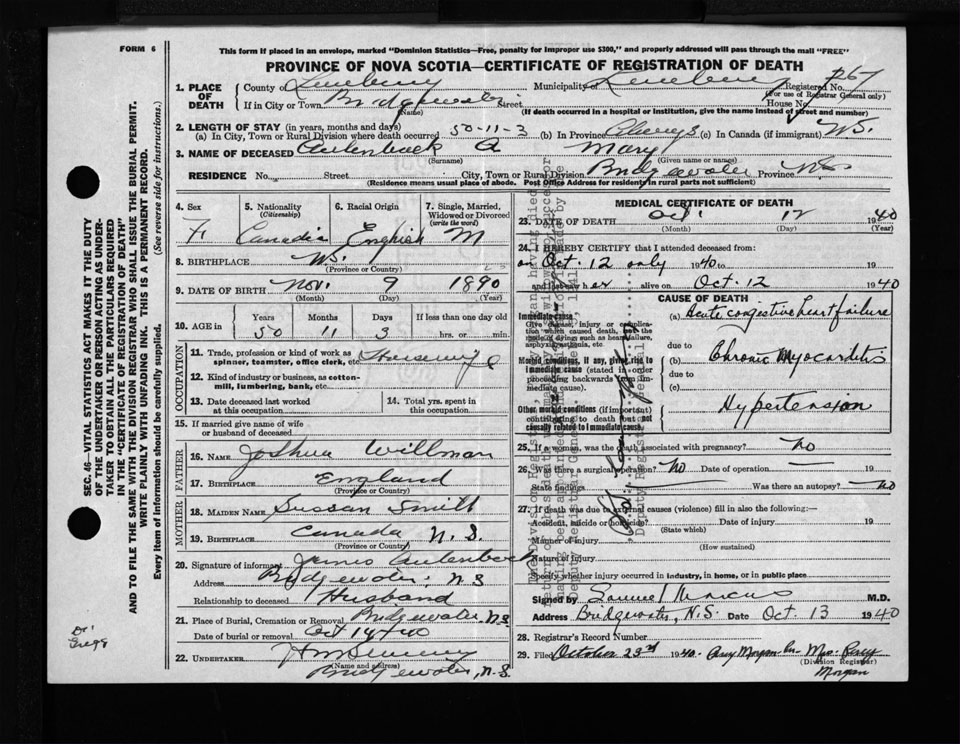 FORM 6
This form if placed in an envelope, marked "Dominion Statistics—Free, penalty for improper use $300," and properly addressed will pass through the mail "FREE"
PROVINCE OF NOVA SCOTIA—CERTIFICATE OF REGISTRATION OF DEATH
1. PLACE OF DEATH
County of Lunenburg Municipality of Lunenburg Registered No.
(For use of Registrar General only)
If in City or Town Bridgewater Street House No.
(Name) (If death occurred in a hospital or institution, give the name instead of street and number)
2. LENGTH OF STAY (in years, months and days)
(a) In City, Town or Rural Division where death occurred 50-11-3 (b) In Province Always (c) In Canada (if immigrant) N.S.
3. NAME OF DECEASED Aulenback A Mary
(Surname) (Given name or names)
RESIDENCE No. Street City, Town or Rural Division Bridgewater Province N.S.
(Residence means usual place of abode. Post Office Address for residents in rural parts not sufficient)
4. Sex
F
5. Nationality (Citizenship)
Canadia
6. Racial Origin
English
7. Single, Married, Widowed or Divorced (write the word)
M
8. BIRTHPLACE N.S.
(Province or Country)
9. DATE OF BIRTH Nov. 9 1890
(Month) (Day) (Year)
10. AGE in
Years Months Days If less than one day old
50 11 3 hrs. or min.
OCCUPATION
11. Trade, profession or kind of work as spinner, teamster, office clerk, etc. Housewife
12. Kind of industry or business, as cotton-mill, lumbering, bank, etc.
13. Date deceased last worked at this occupation
14. Total yrs. spent in this occupation
15. If married give name of wife or husband of deceased
FATHER
16. NAME Joshua Willman
17. BIRTHPLACE England
(Province or Country)
MOTHER
18. MAIDEN NAME Sussan Smith
19. BIRTHPLACE Canada N.S.
(Province or Country)
20. Signature of informant James Aulenback
Address Bridgewater, N.S
Relationship to deceased Husband
21. Place of Burial, Cremation or Removal Bridgewater N.S
Date of burial or removal Oct 14 + 40
22. UNDERTAKER
(Name and address)
Bridgewater, N.S.
MEDICAL CERTIFICATE OF DEATH
23. DATE OF DEATH Oct. 12 1940
(Month) (Day) (Year)
24. I HEREBY CERTIFY that I attended deceased from:
on Oct. 12 only 1940 to 19
and last saw her alive on Oct. 12 1940
CAUSE OF DEATH
Immediate cause
Give disease, injury or complication which caused death, not the mode of dying such as heart failure, asphyxia, asthenia, etc
(a) Acute congestive heart failure
due to
Morbid conditions, if any, giving rise to immediate cause (stated in order proceeding backwards from immediate cause).
(b) Chronic Myocarditis
due to
(c)
Other morbid conditions (if important) contributing to death but not causally related to immediate cause.
Hypertension
25. If a woman, was the death associated with pregnancy? No
26. Was there a surgical operation? No Date of operation — 19
State findings Was there an autopsy? No
27. If death was due to external causes (violence) fill in also the following:—
Accident, suicide or homicide? Date of injury 19
(State which)
Manner of injury
(How sustained)
Nature of injury
Specify whether injury occurred in industry, in home, or in public place
Signed by Samuel Marcus M.D.
Address Bridgewater, N.S. Date Oct. 13 1940
28. Registrar's Record Number
29. Filed October 23rd 1940. Percy Morgan Mrs. Percy Morgan
(Division Registrar)
SEC. 46—VITAL STATISTICS ACT MAKES IT THE DUTY OF THE UNDERTAKER OR PERSON ACTING AS UNDERTAKER TO OBTAIN ALL THE PARTICULARS REQUIRED IN THE "CERTIFICATE OF REGISTRATION OF DEATH" AND TO FILE THE SAME WITH THE DIVISION REGISTRAR WHO SHALL ISSUE THE BURIAL PERMIT.
WRITE PLAINLY WITH UNFADING INK. THIS IS A PERMANENT RECORD.
Every item of information should be carefully supplied. (See reverse side for instructions.)